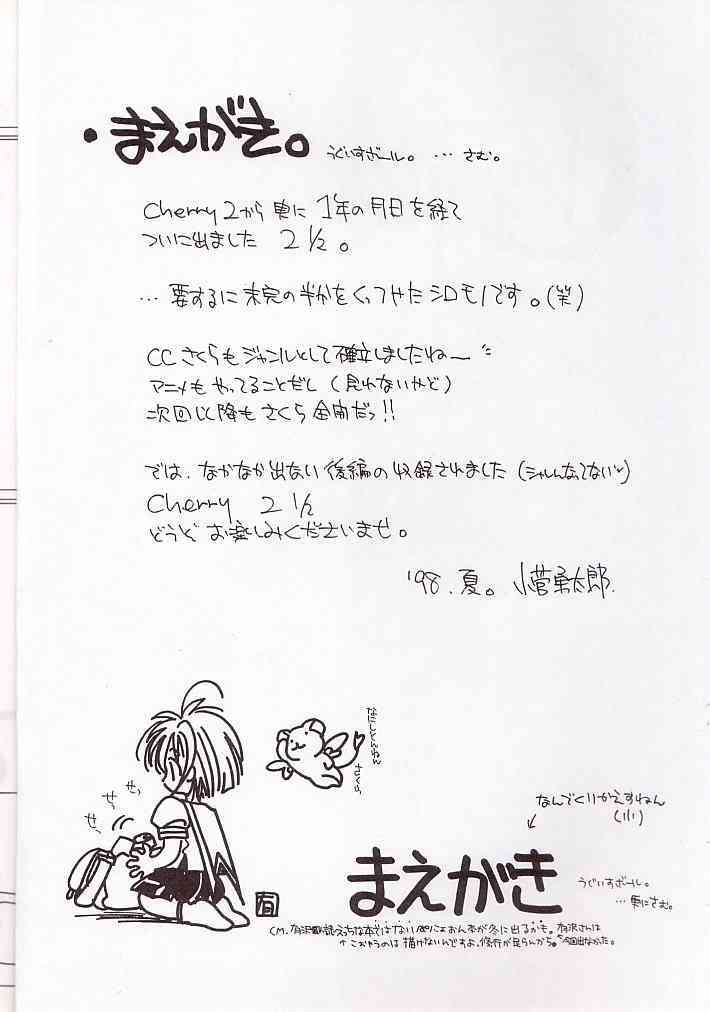 ・まえがき。 うぐいすボール。 … さむ。
Cherry 2から 更に 1年の月日を経て
ついに出ました 2 1/2 。
… 要するに 未完の半分をくっつけた シロモノです。(笑)
CCさくらもジャンルとして確立しましたねー
アニメも やってることだし (見れないけど)
次回以降もさくら全開だっ!!
では、なかなか出ない後編の収録されました (シャレんなってない)
Cherry 2 1/2
どうぞ お楽しみくださいませ。
'98.夏。 小菅勇太郎.
なにしとんねん
さくら
せっ
せっ
せっ
なんでくりかえすねん
(小)
まえがき うぐいすボール。
… 更にさむ。
CM. 有沢 えっちな本ではない おん本が冬に出るかも。有沢さんは
↑こおゆうのは描けないんですよ、修行が足らんから。 今回出なかった。